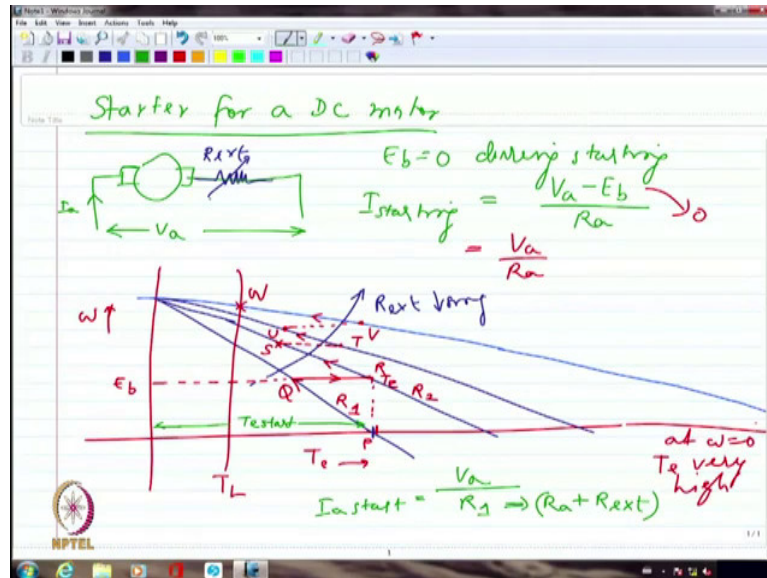 Note1 - Windows Journal
File Edit View Insert Actions Tools Help
100%
B I
Note Title
Starter for a DC motor
Rext
Eb=0 during starting
Ia
Va
Istarting = Va-Eb / Ra
0
= Va / Ra
ω↑
W
Rext ↓ing
U
V
S
T
Eb
Q
R
Te
R1
R2
Testart
P
at ω=0
Te very
high
TL
Te →
Iastart = Va / R1 ⇒ (Ra+Rext)
NPTEL
1/1
1